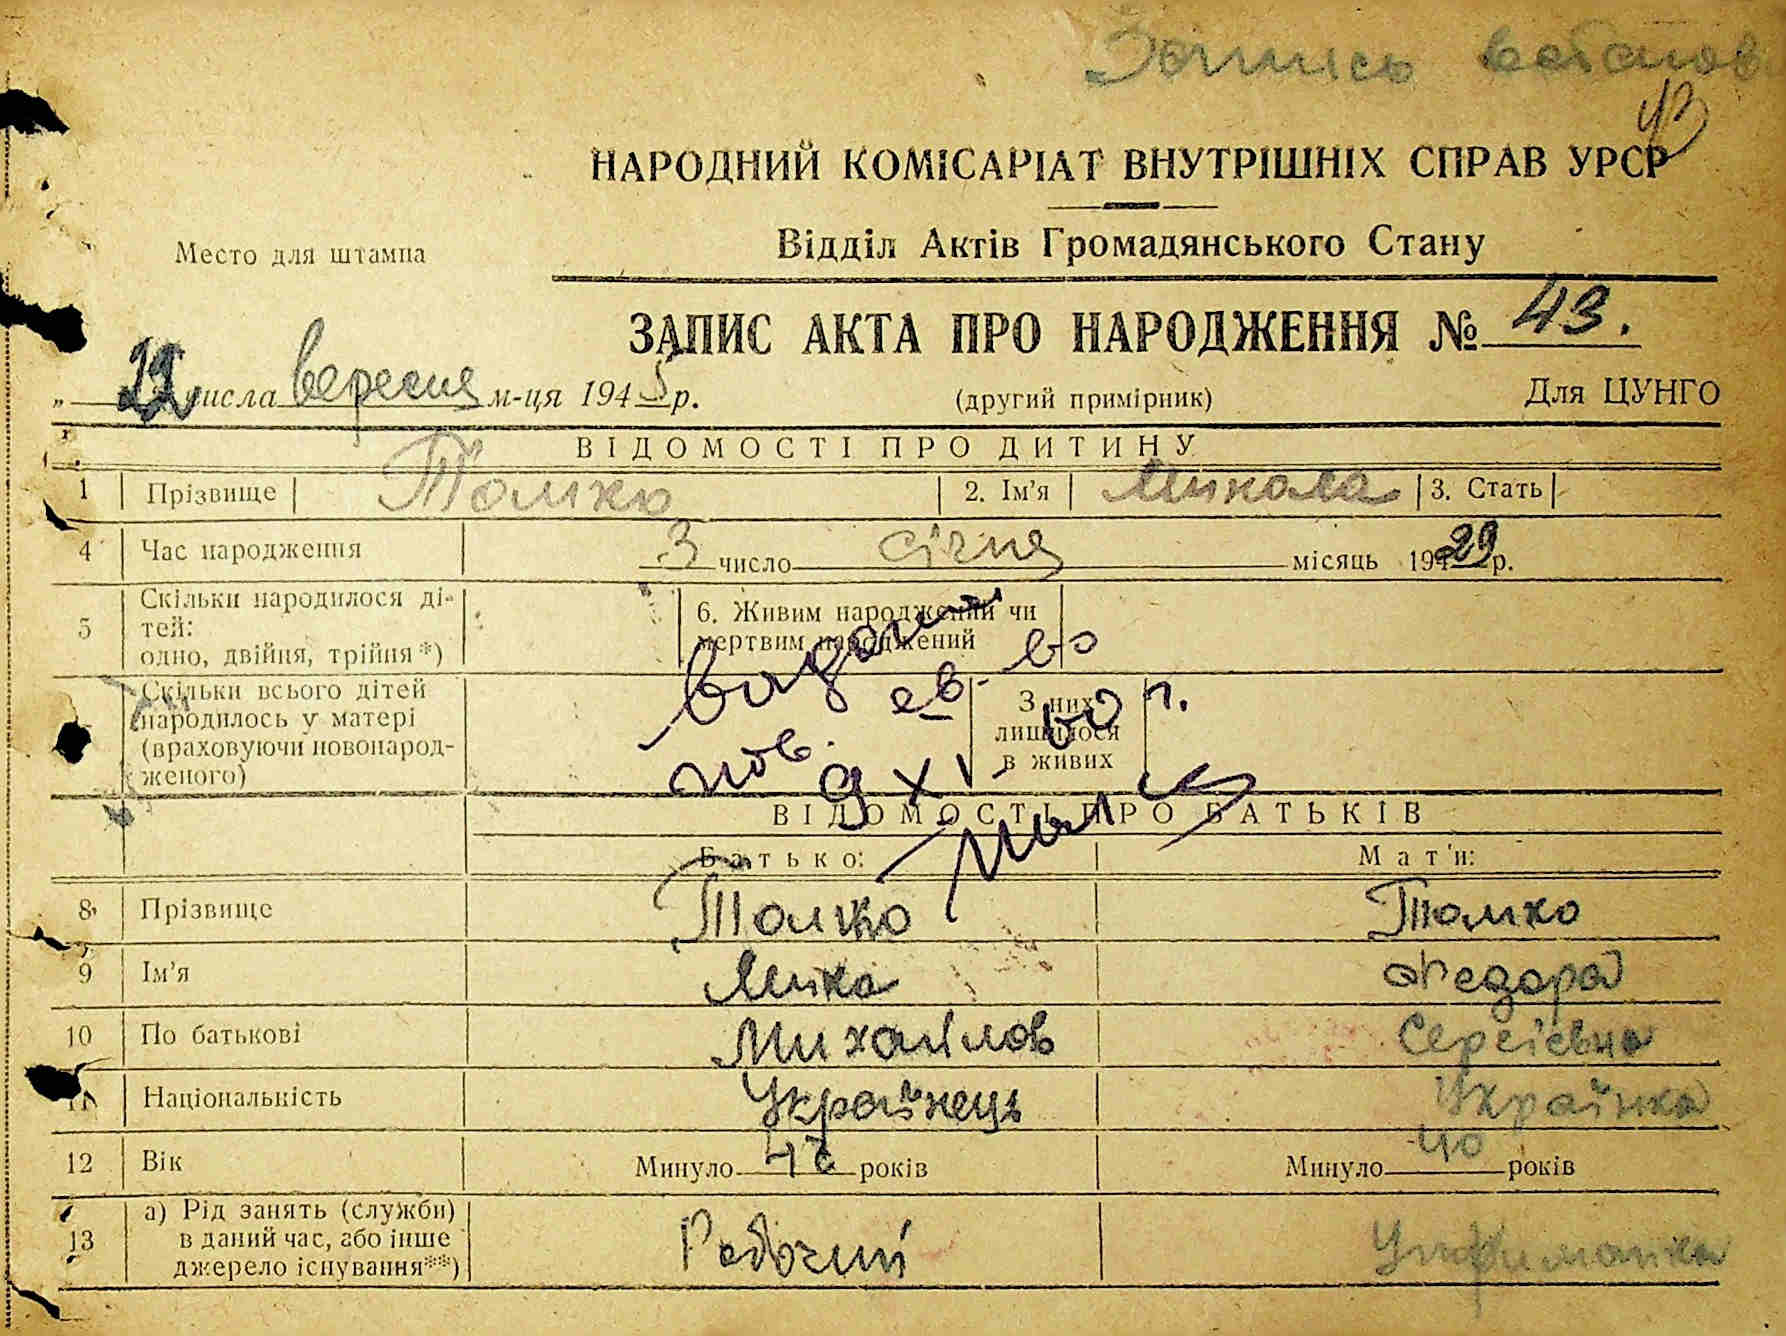 Запись востанов
43
НАРОДНИЙ КОМІСАРІАТ ВНУТРІШНІХ СПРАВ УРСР
Место для штампа
Відділ Актів Громадянського Стану
ЗАПИС АКТА ПРО НАРОДЖЕННЯ № 43.
„ числа вересня м-ця 1945 р. (другий примірник) Для ЦУНГО
ВІДОМОСТІ ПРО ДИТИНУ
1 Прізвище Томко 2. Ім'я Микола 3. Стать
4 Час народження 3 число січня місяць 1929 р.
5 Скільки народилося ді-
тей:
одно, двійня, трійня*)
6. Живим народжений чи
мертвим народжений
Скільки всього дітей
народилось у матері
(враховуючи новонарод-
женого)
З них
лишилося
в живих
нов. св-во
9 XI 60 г.
ВІДОМОСТІ ПРО БАТЬКІВ
Батько: Мат'и:
8 Прізвище Томко Томко
9 Ім'я Мика Федора
10 По батькові Михайлов Сергієвна
11 Національність Українець Українка
12 Вік Минуло років Минуло 40 років
13 а) Рід занять (служби)
в даний час, або інше
джерело існування**)
Робочий